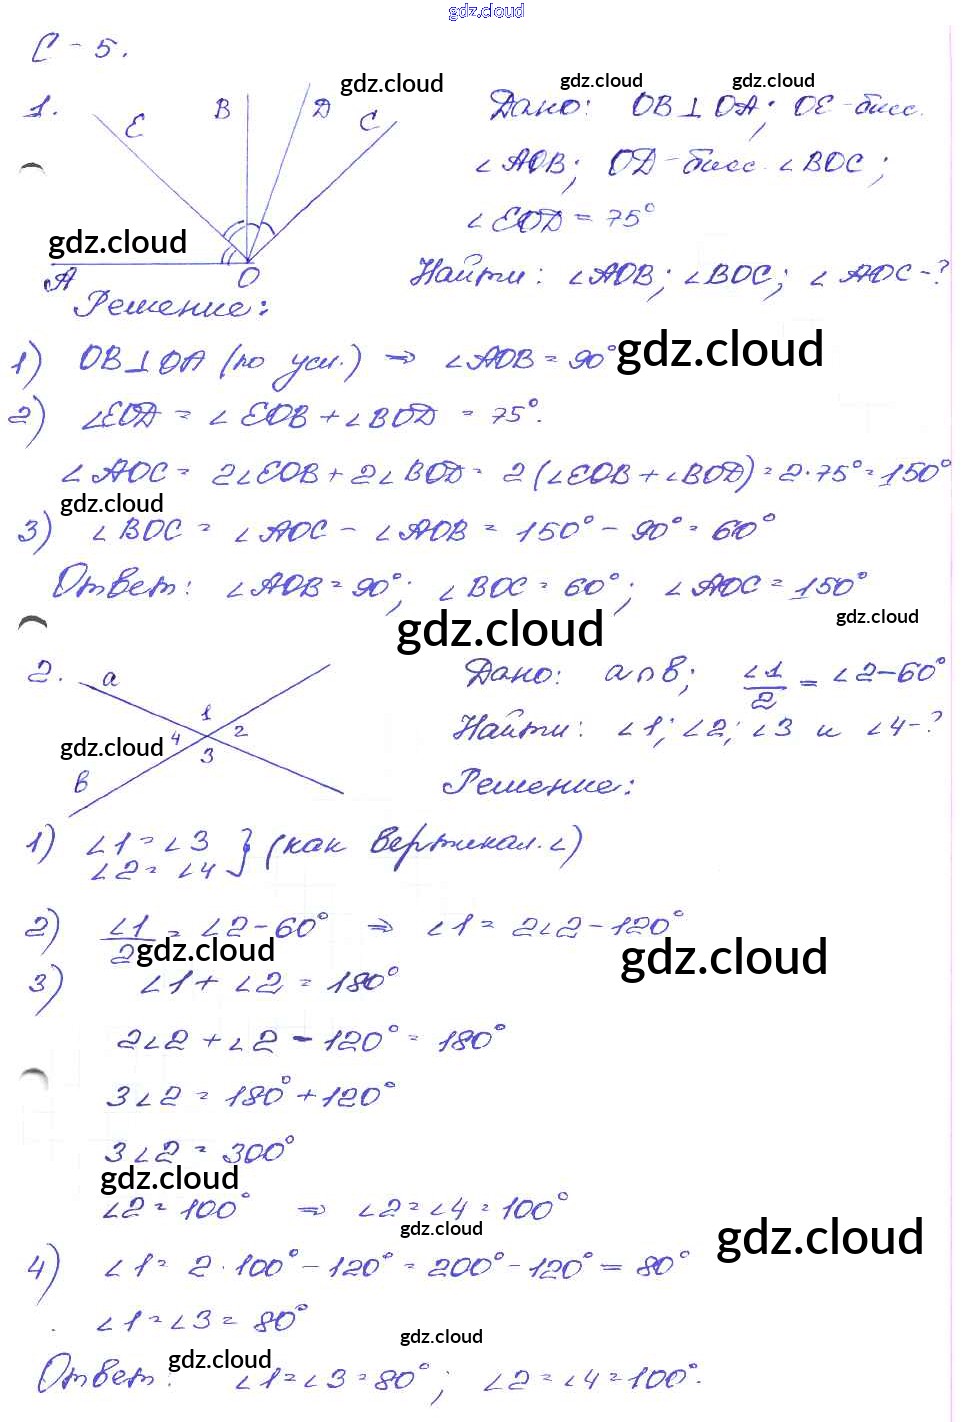 gdz.cloud
С-5.
1. E B D C gdz.cloud
A O gdz.cloud
gdz.cloud gdz.cloud
Дано: OB⊥OA; OE-бисс.
∠AOB; OD-бисс. ∠BOC;
∠EOD = 75°
Найти: ∠AOB; ∠BOC; ∠AOC-?
Решение:
1) OB⊥OA (по усл.) ⇒ ∠AOB = 90° gdz.cloud
2) ∠EOD = ∠EOB + ∠BOD = 75°.
∠AOC = 2∠EOB + 2∠BOD = 2(∠EOB + ∠BOD) = 2·75° = 150°
gdz.cloud
3) ∠BOC = ∠AOC - ∠AOB = 150° - 90° = 60°
Ответ: ∠AOB = 90°; ∠BOC = 60°; ∠AOC = 150°
gdz.cloud gdz.cloud
2. a 1 2 3 4 в
gdz.cloud
Дано: a∩в; ∠1/2 = ∠2-60°
Найти: ∠1; ∠2; ∠3 и ∠4-?
Решение:
1) ∠1 = ∠3
∠2 = ∠4 } (как вертикал. ∠)
2) ∠1/2 = ∠2-60° ⇒ ∠1 = 2∠2-120°
gdz.cloud gdz.cloud
3) ∠1 + ∠2 = 180°
2∠2 + ∠2 - 120° = 180°
3∠2 = 180° + 120°
3∠2 = 300°
gdz.cloud
∠2 = 100° ⇒ ∠2 = ∠4 = 100°
gdz.cloud gdz.cloud
4) ∠1 = 2·100° - 120° = 200° - 120° = 80°
∠1 = ∠3 = 80°
gdz.cloud
gdz.cloud
Ответ: ∠1 = ∠3 = 80°; ∠2 = ∠4 = 100°.